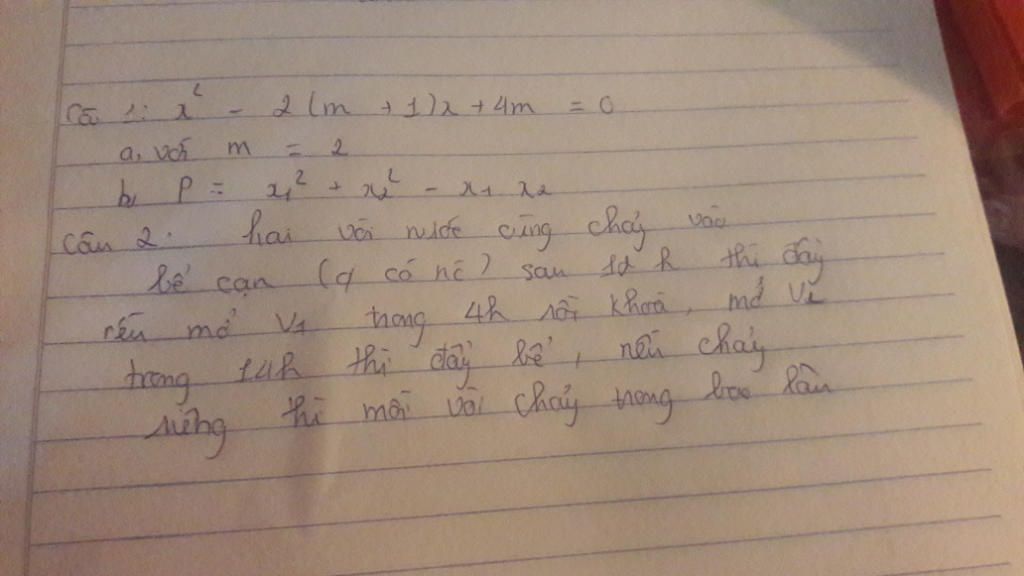 Câu 1: x² - 2(m + 1)x + 4m = 0
a, với m = 2
b, P = x₁² + x₂² - x₁ x₂
Câu 2: hai vòi nước cùng chảy vào
bể cạn ( có nc) sau 12 h thì đầy
nếu mở V₁ trong 4h rồi khoá, mở V₂
trong 14h thì đầy bể, nếu chảy
riêng thì mỗi vòi chảy trong bao lâu